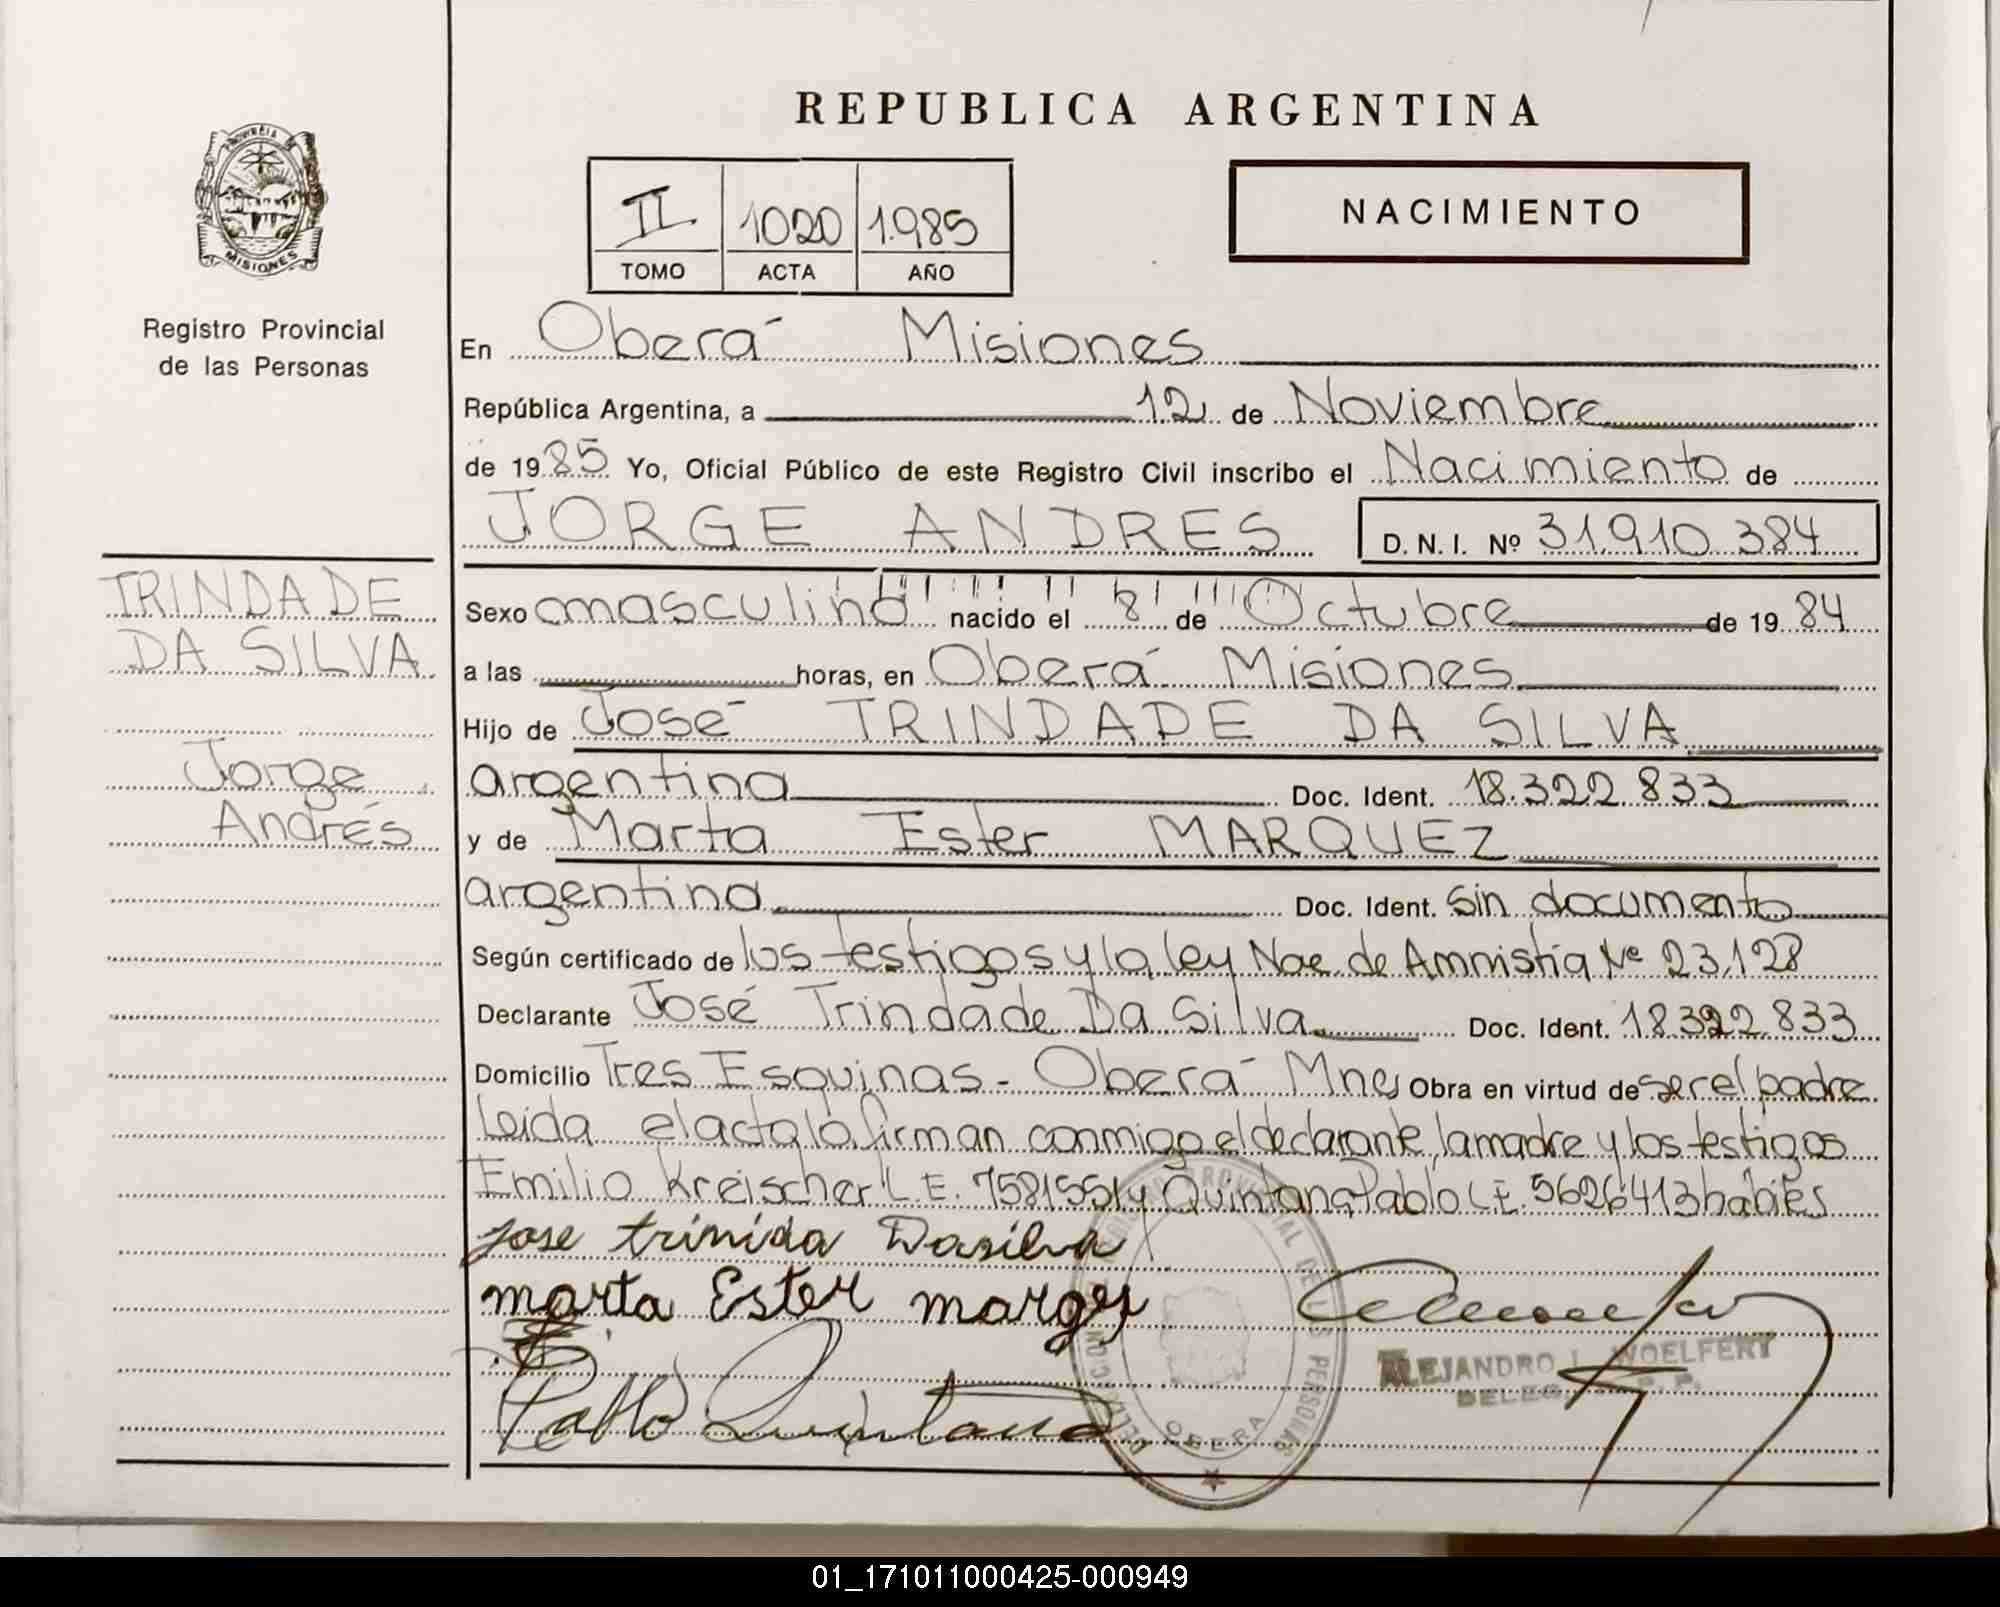 REPUBLICA ARGENTINA
PROVINCIA DE MISIONES
II 1020 1.985
TOMO ACTA AÑO
NACIMIENTO
Registro Provincial
de las Personas
En Oberá Misiones
República Argentina, a 12 de Noviembre
de 1985 Yo, Oficial Público de este Registro Civil inscribo el Nacimiento de
JORGE ANDRES D.N.I. Nº 31.910.384
TRINDADE
DA SILVA
Jorge
Andrés
Sexo masculino nacido el 8 de Octubre de 1984
a las horas, en Oberá Misiones
Hijo de José TRINDADE DA SILVA
argentina Doc. Ident. 18.322.833
y de Marta Ester MARQUEZ
argentina Doc. Ident. Sin documento
Según certificado de los testigos y la ley Nac. de Amnistía Nº 23.128
Declarante José Trindade Da Silva Doc. Ident. 18.322.833
Domicilio Tres Esquinas - Oberá Mnes Obra en virtud de ser el padre
Leida el acta la firman conmigo el declarante, la madre y los testigos
Emilio Kreischer L.E. 7581551 y Quintana Pablo L.E. 5626413 habiles
jose trinida Dasilva
marta Ester marges
Pablo Quintana
ALEJANDRO I. WOELFERT
OBERA
01_171011000425-000949